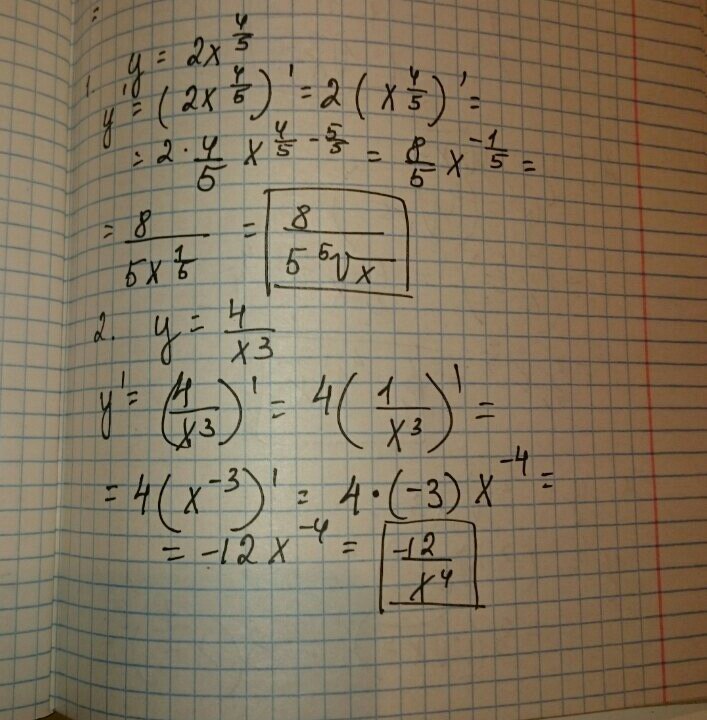 1. y = 2x^{4/5}
y' = (2x^{4/5})' = 2(x^{4/5})' =
= 2 · 4/5 x^{4/5 - 5/5} = 8/5 x^{-1/5} =
= 8/(5x^{1/5}) = 8/(5 ⁵√x)
2. y = 4/x³
y' = (4/x³)' = 4(1/x³)' =
= 4(x^{-3})' = 4·(-3)x^{-4} =
= -12x^{-4} = -12/x⁴